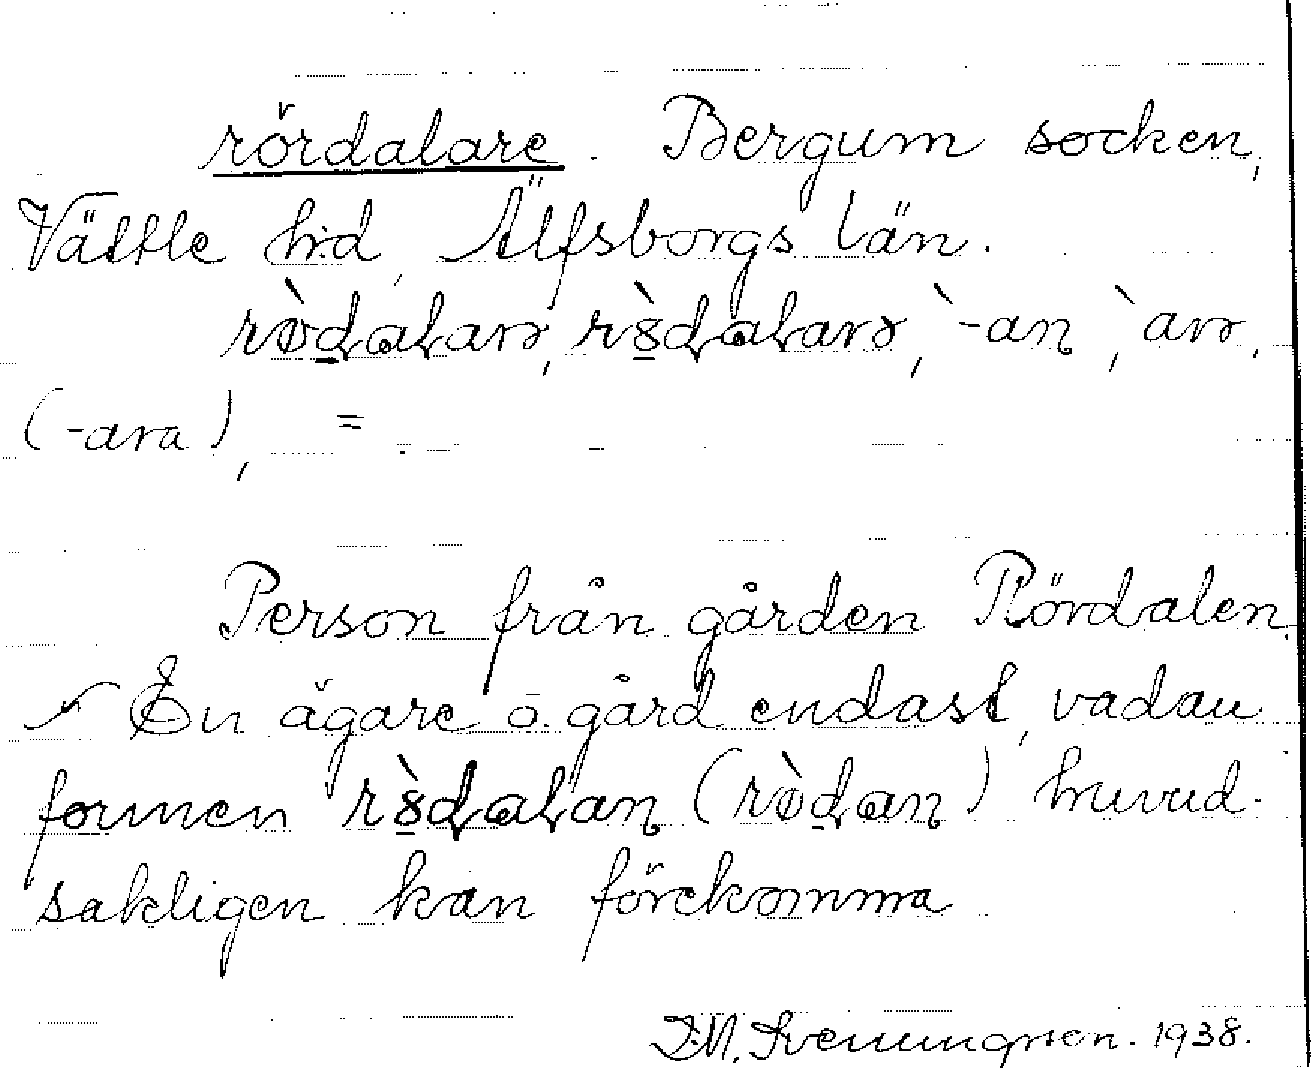 rördalare. Bergum socken,
Vättle hd, Älfsborgs län.
rø̀dalarə, rs̀dalarə, `-an, `arə,
(-ara), =
Person från gården Rördalen
En ägare o. gård endast, vadan
formen rs̀dalan (rø̀dan) huvud-
sakligen kan förekomma
Svenungsson. 1938.